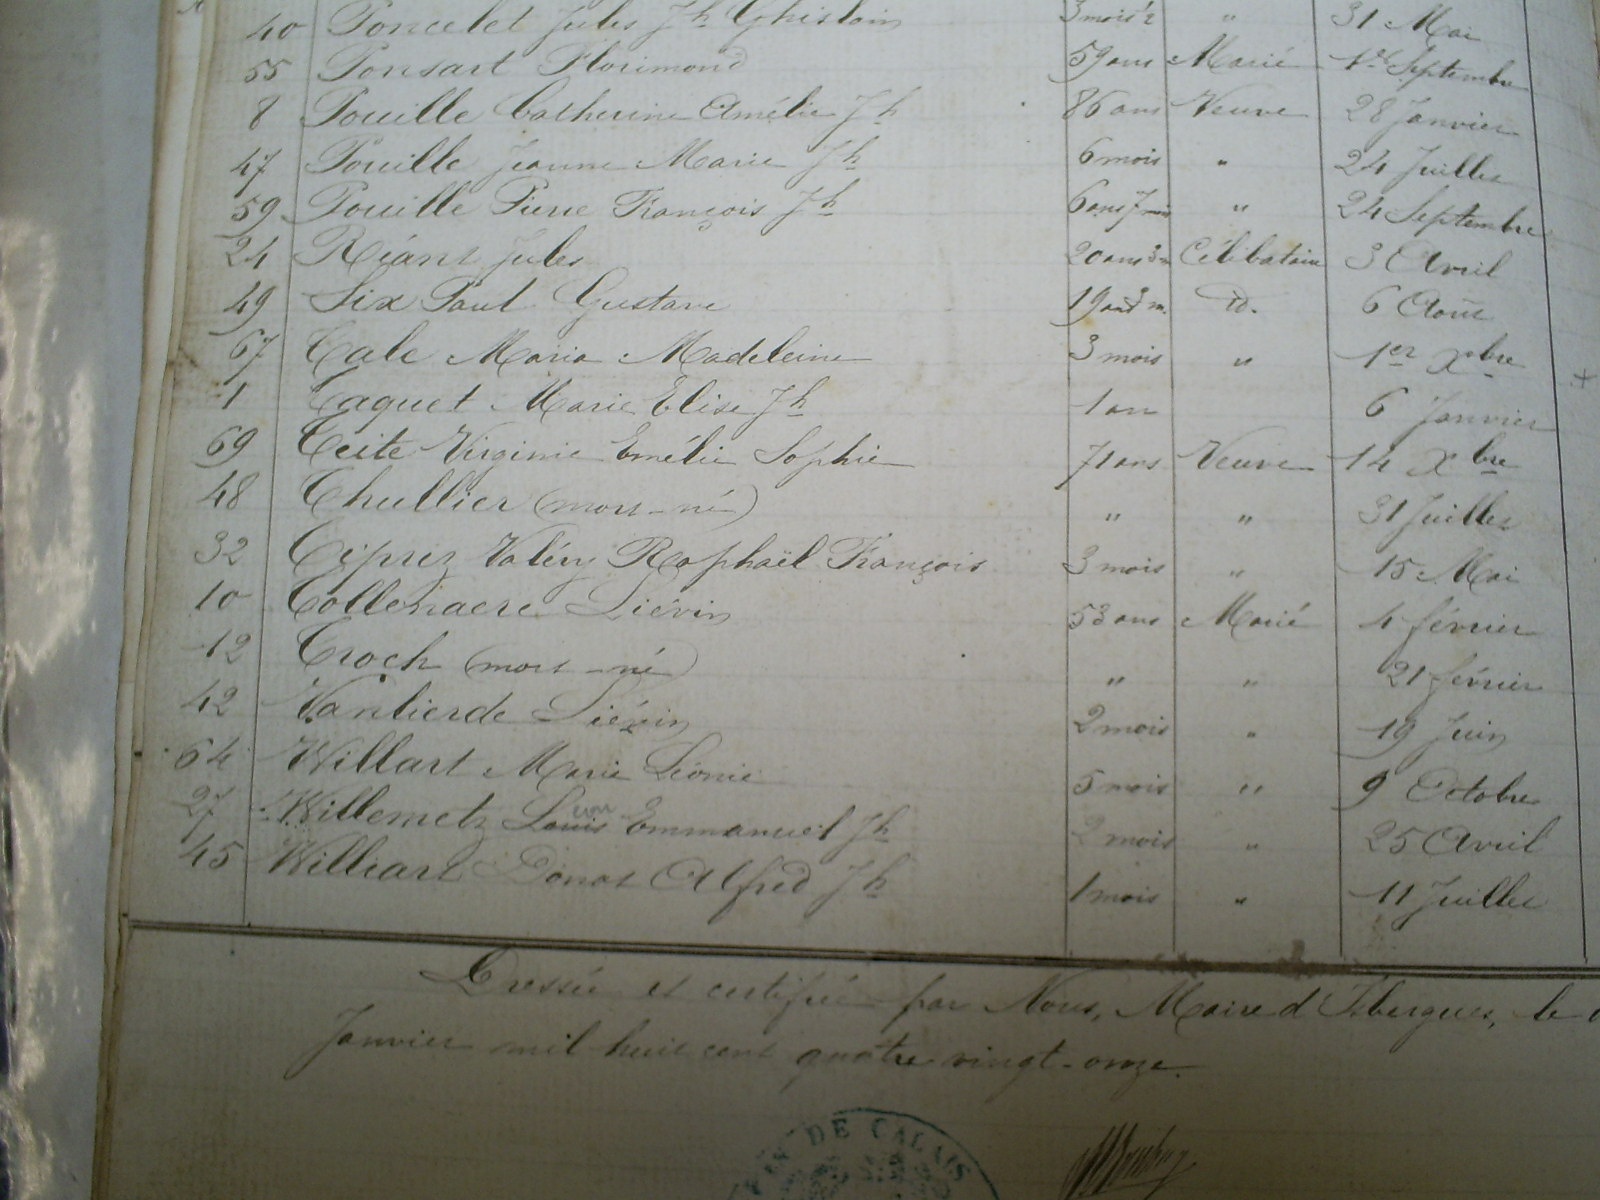 40 Poncelet Jules Jh Ghislain 3 mois ½ " 31 Mai
55 Ponsart Florimond 59 ans Marié 1er Septembre
8 Pouille Catherine Amélie Jh 86 ans Veuve 28 Janvier
47 Pouille Jeanne Marie Jh 6 mois " 24 Juillet
59 Pouille Pierre François Jh 6 ans 7 mois " 24 Septembre
21 Riant Jules 20 ans 3 m Célibataire 3 Avril
49 Six Paul Gustave 19 ans 3 m. id. 6 Août
67 Tale Maria Madeleine 3 mois " 1er Xbre
1 Taquet Marie Elise Jh 1 an 6 Janvier
69 Teite Virginie Emélie Sophie 71 ans Veuve 14 Xbre
48 Thullier (mort-né) " " 31 Juillet
32 Tiprez Valéry Raphaël François 3 mois " 15 Mai
10 Tollenaere Liévin 53 ans Marié 4 février
12 Troch (mort-né) " " 21 février
42 Vanlierde Liévin 2 mois " 19 Juin
64 Willart Marie Léonie 5 mois " 9 Octobre
27 Willemetz Louis Emmanuel Jh 2 mois " 25 Avril
45 Williart Donat Alfred Jh 1 mois " 11 Juillet
Dressée et certifiée par Nous, Maire d'Isbergues, le
Janvier mil huit cent quatre vingt-onze.
DE CALAIS